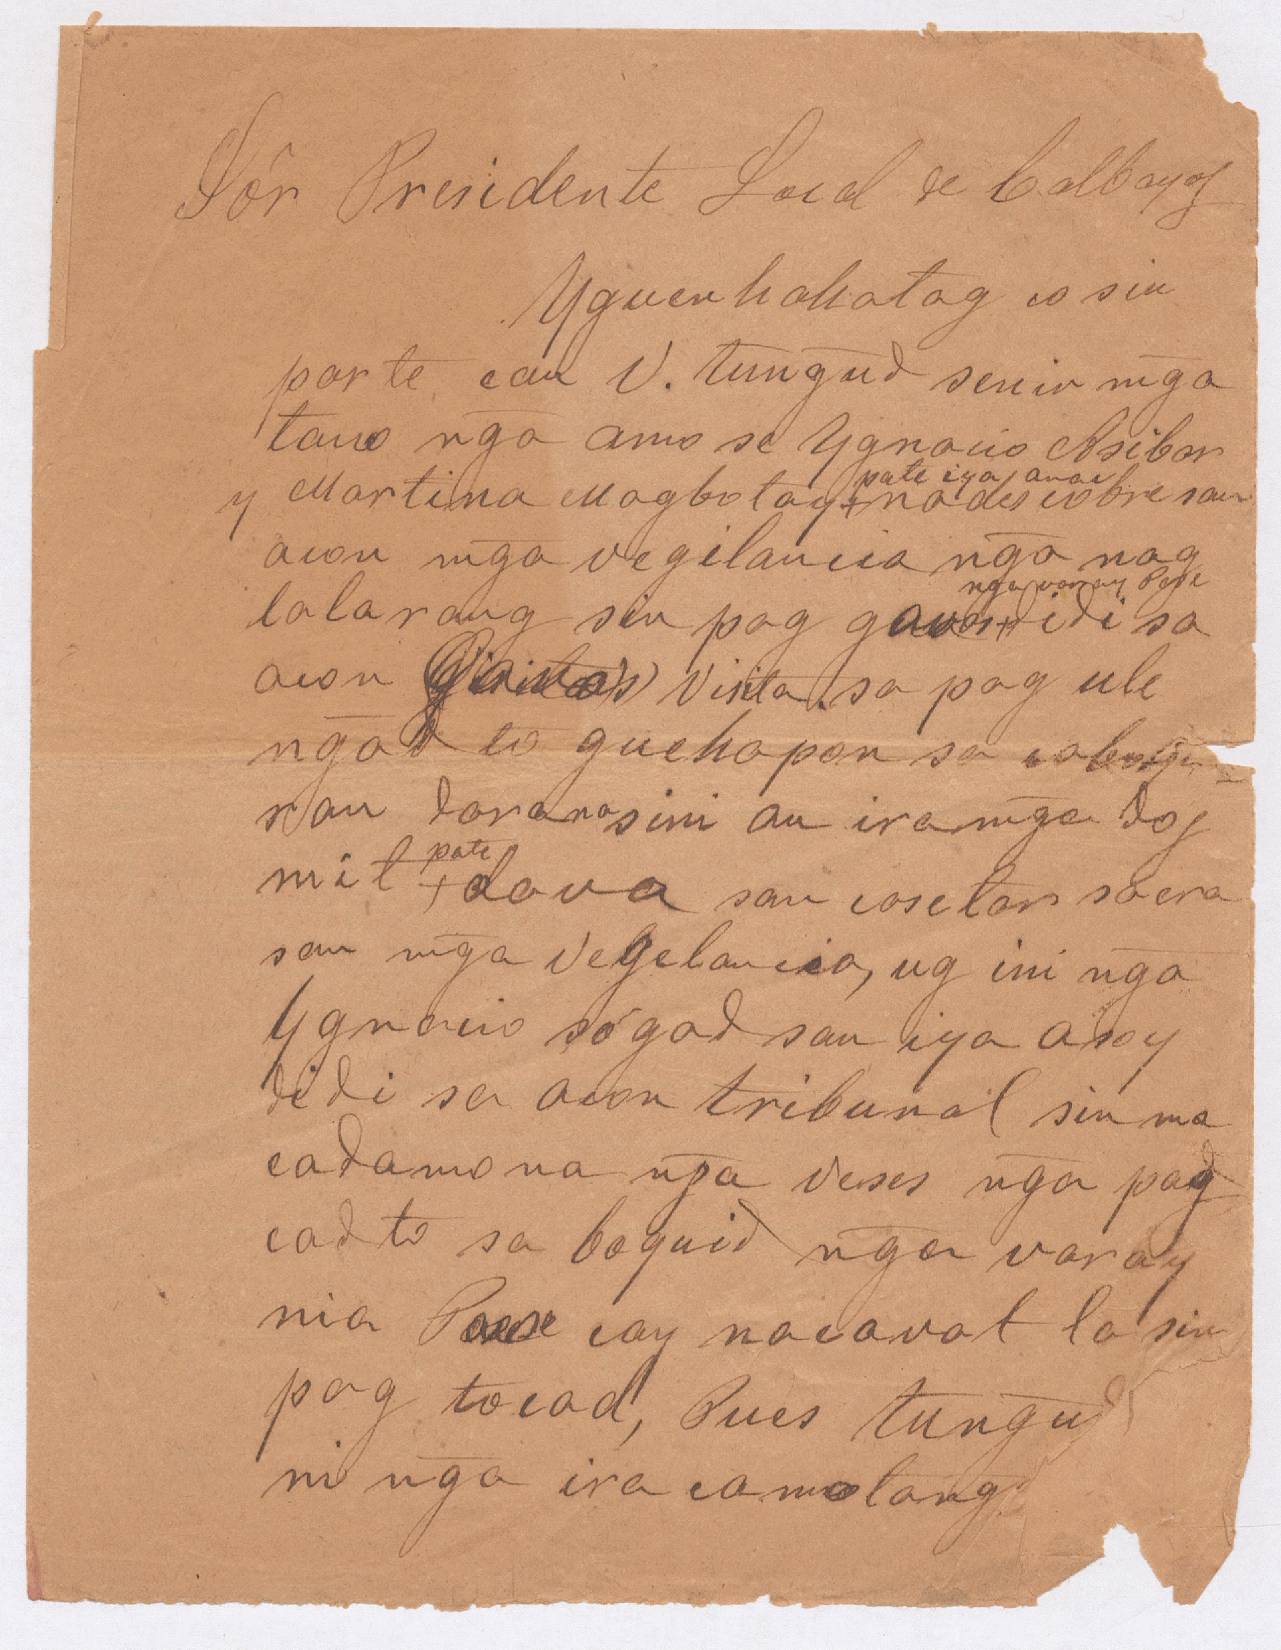 Sôr Presidente Local de Calbayog
Yguenhahatag co sin
parte can V. tungud senin mga
tauo nga amo se Ygnacio Asibar
pate iya anac
y Martina Magbotay + nadescobre san
acon mga vegilancia nga nag
nga varay Pase
lalarang sin pag gauas + didi sa
acon Visita. sa pag ule
ngad to guehapon sa
san daranasini an ira mga dog
pate
mît + dava san cosetar sa era
san mga Vegelancia, ug ini nga
Ygnacio sógad san iya asoy
didi sa acon tribunal sin ma
cadamo na nga veses nga pag
cadto sa boquid nga varay
nia Pase cay nacavat la sin
pag tocad, Pues tungud
ni nga ira camotang